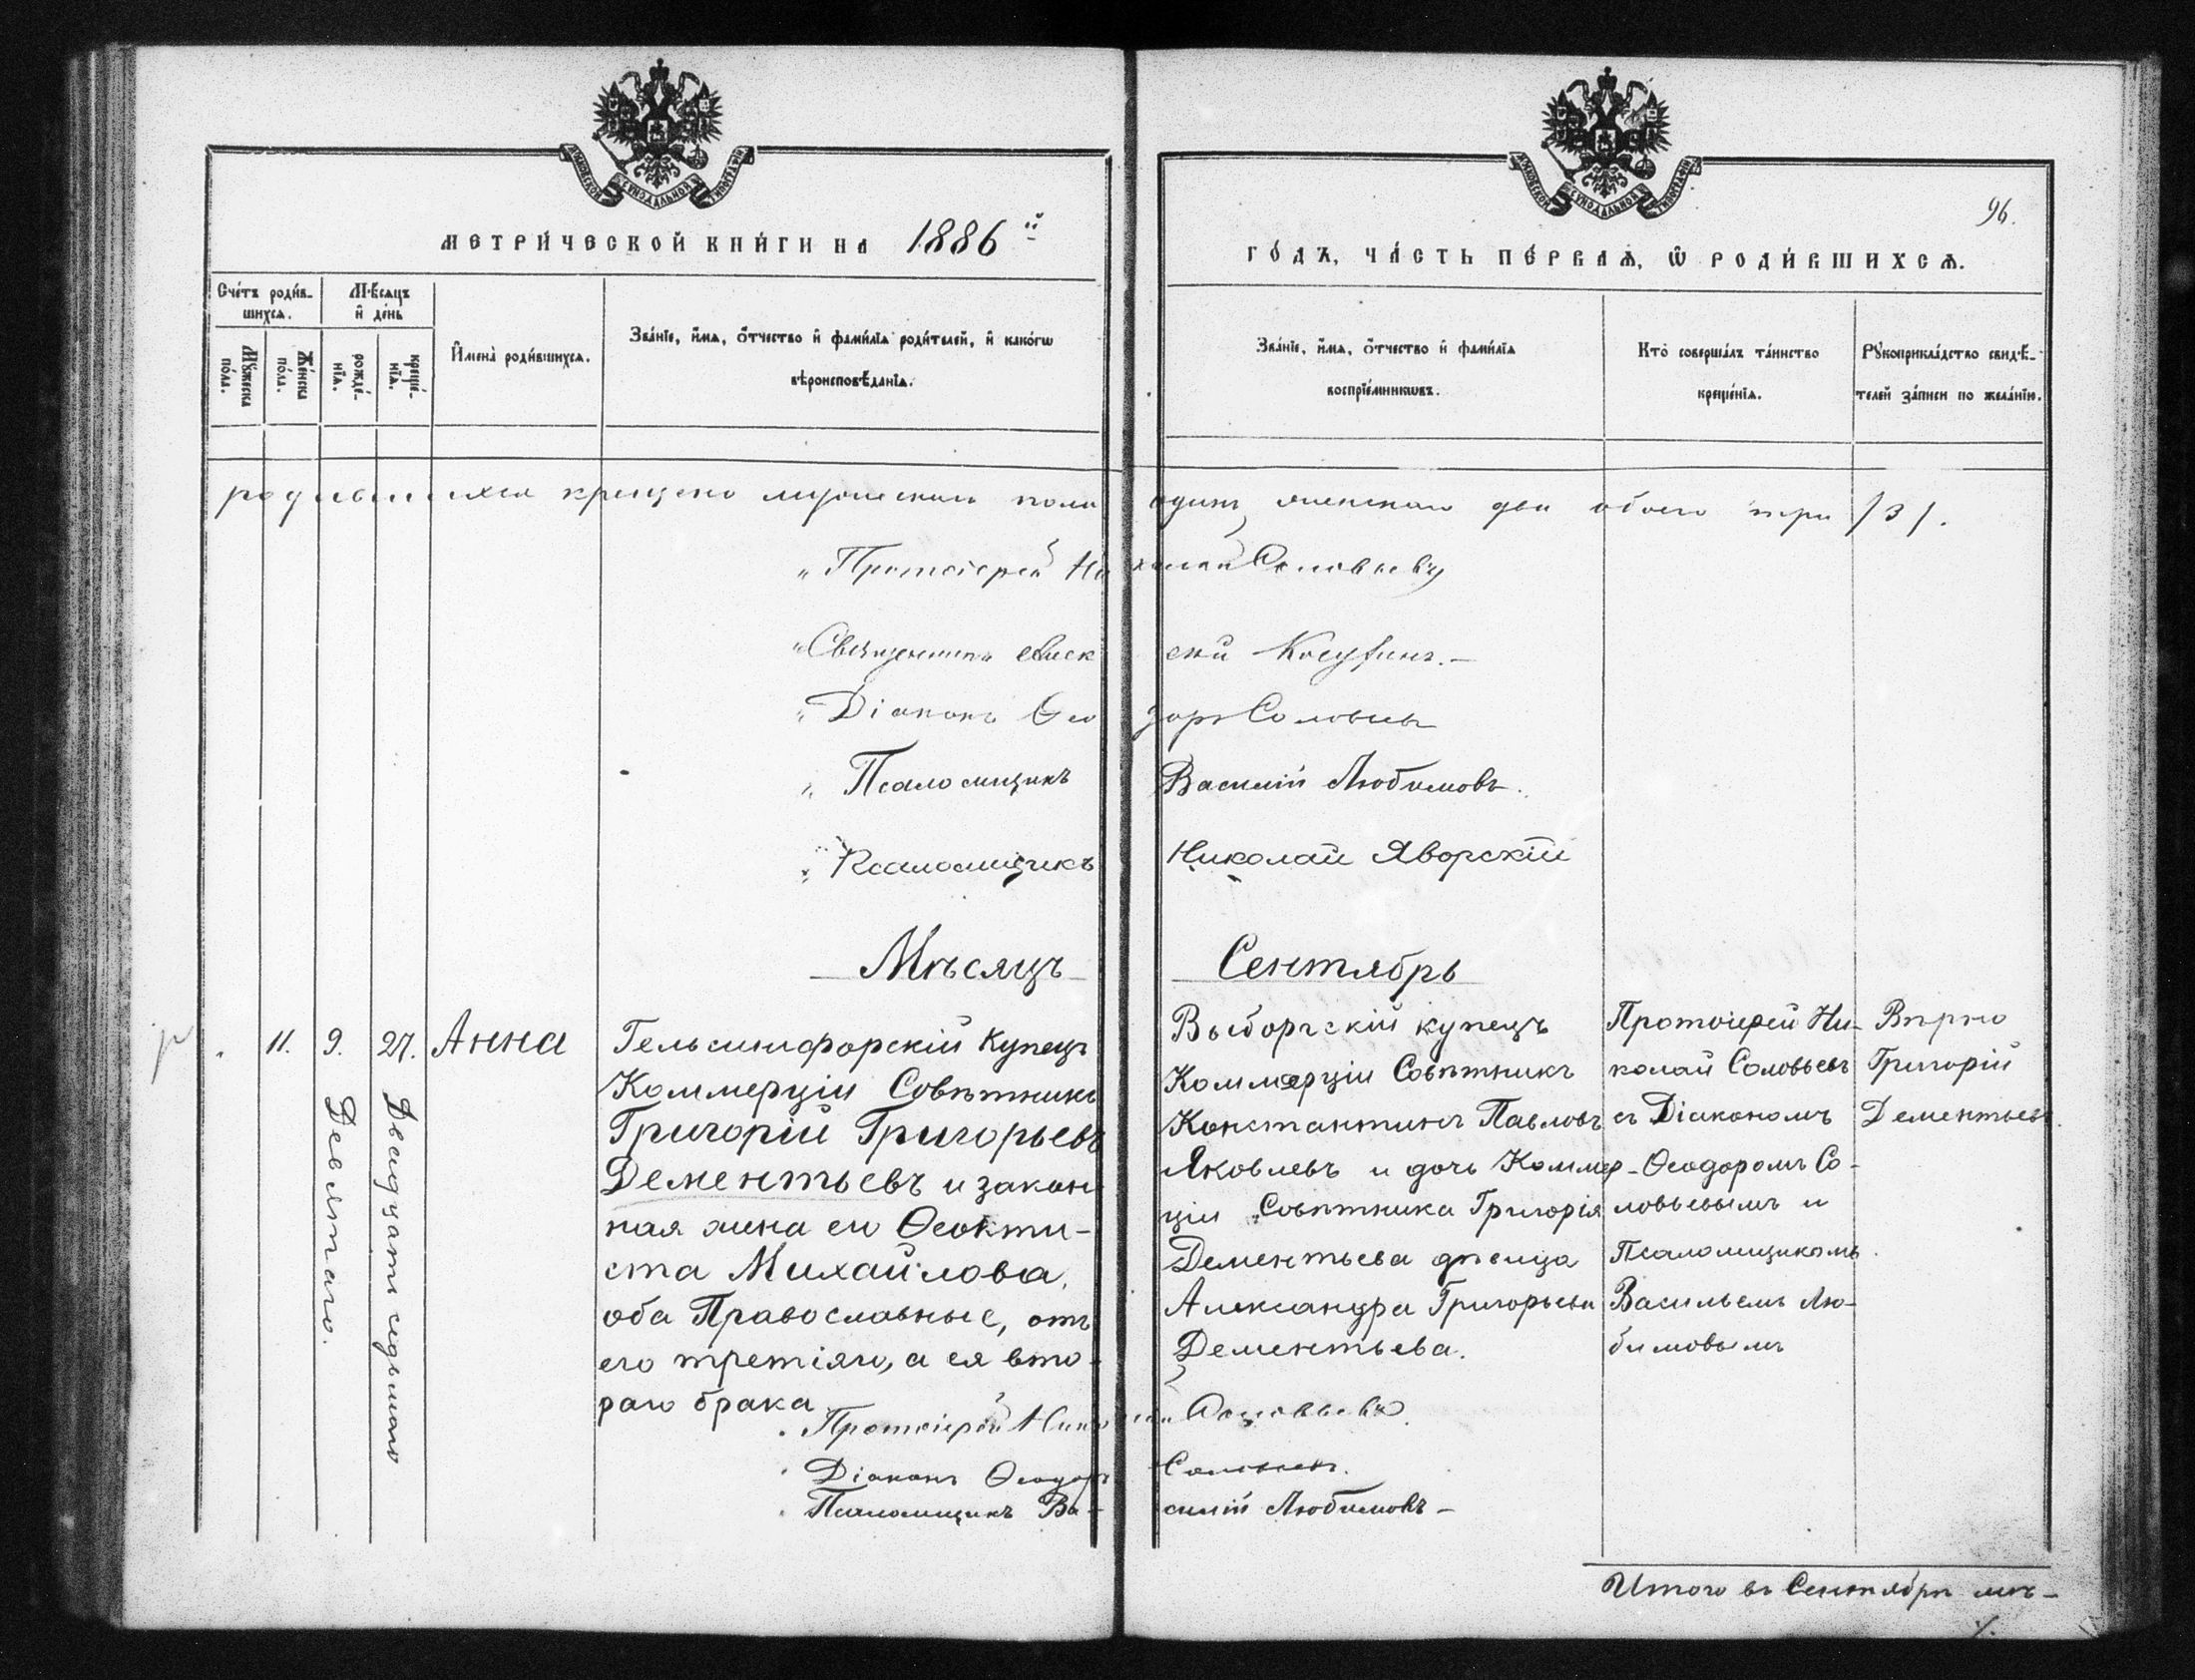 96.
МЕТРИ́ЧЕСКОЙ КНИ́ГИ НА 1886й
ГО́ДЪ, ЧА́СТЬ ПЕ́РВАѦ, Ѿ РОДИ́ВШИХСѦ.
Сче́тъ роди́в-
шихсѧ.
Мꙋжеска по́ла.
Же́нска по́ла.
Мѣ́сѧцъ и҆ де́нь
рожде́-нїѧ.
креще́-нїѧ.
И҆мена̀ роди́вшихсѧ.
Зва́нїе, и҆́мѧ, о҆́тчество и҆ фами́лїѧ роди́телей, и҆ како́гѡ
вѣроисповѣ́данїѧ.
Зва́нїе, и҆́мѧ, о҆́тчество и҆ фами́лїѧ
воспрїе́мникѡвъ.
Кто̀ соверша́лъ та́инство
креще́нїѧ.
Рꙋкоприкла́дство свидѣ́-
телей за́писи по жела́нїю.
родившихся крещено мужескаго пола одинъ, женскаго два обоего три /3/.
„Протоіерей Николай Соловьевъ
„Священникъ
„Діаконъ Ѳеодоръ Соловьевъ
„Псаломщикъ Василій Любимовъ.
„Псаломщикъ Николай Яворскій
Мѣсяцъ Сентябрь
11.
9. Девятаго.
27. Двадцать седьмаго
Анна
Гельсингфорскій Купецъ
Коммерціи Совѣтникъ
Григорій Григорьевъ
Дементьевъ и закон
ная жена его Ѳеокти-
ста Михайлова,
оба Православные, отъ
его третіяго, а ея вто-
раго брака
Выборгскій купецъ
Коммерціи Совѣтникъ
Константинъ Павловъ
Яковлевъ и дочь Коммер-
ціи Совѣтника Григорія
Дементьева дѣвица
Александра Григорьева
Дементьева.
Протоіерей Ни-
колай Соловьевъ
съ Діакономъ
Ѳеодоромъ Со-
ловьевымъ и
Псаломщикомъ
Васильемъ Лю-
бимовымъ
Вѣрно
Григорій
Дементьевъ.
Протоіерей Николай Соловьевъ.
Діаконъ Ѳеодоръ Соловьевъ.
Псаломщикъ Василій Любимовъ –
Итого въ Сентябрѣ мѣ-